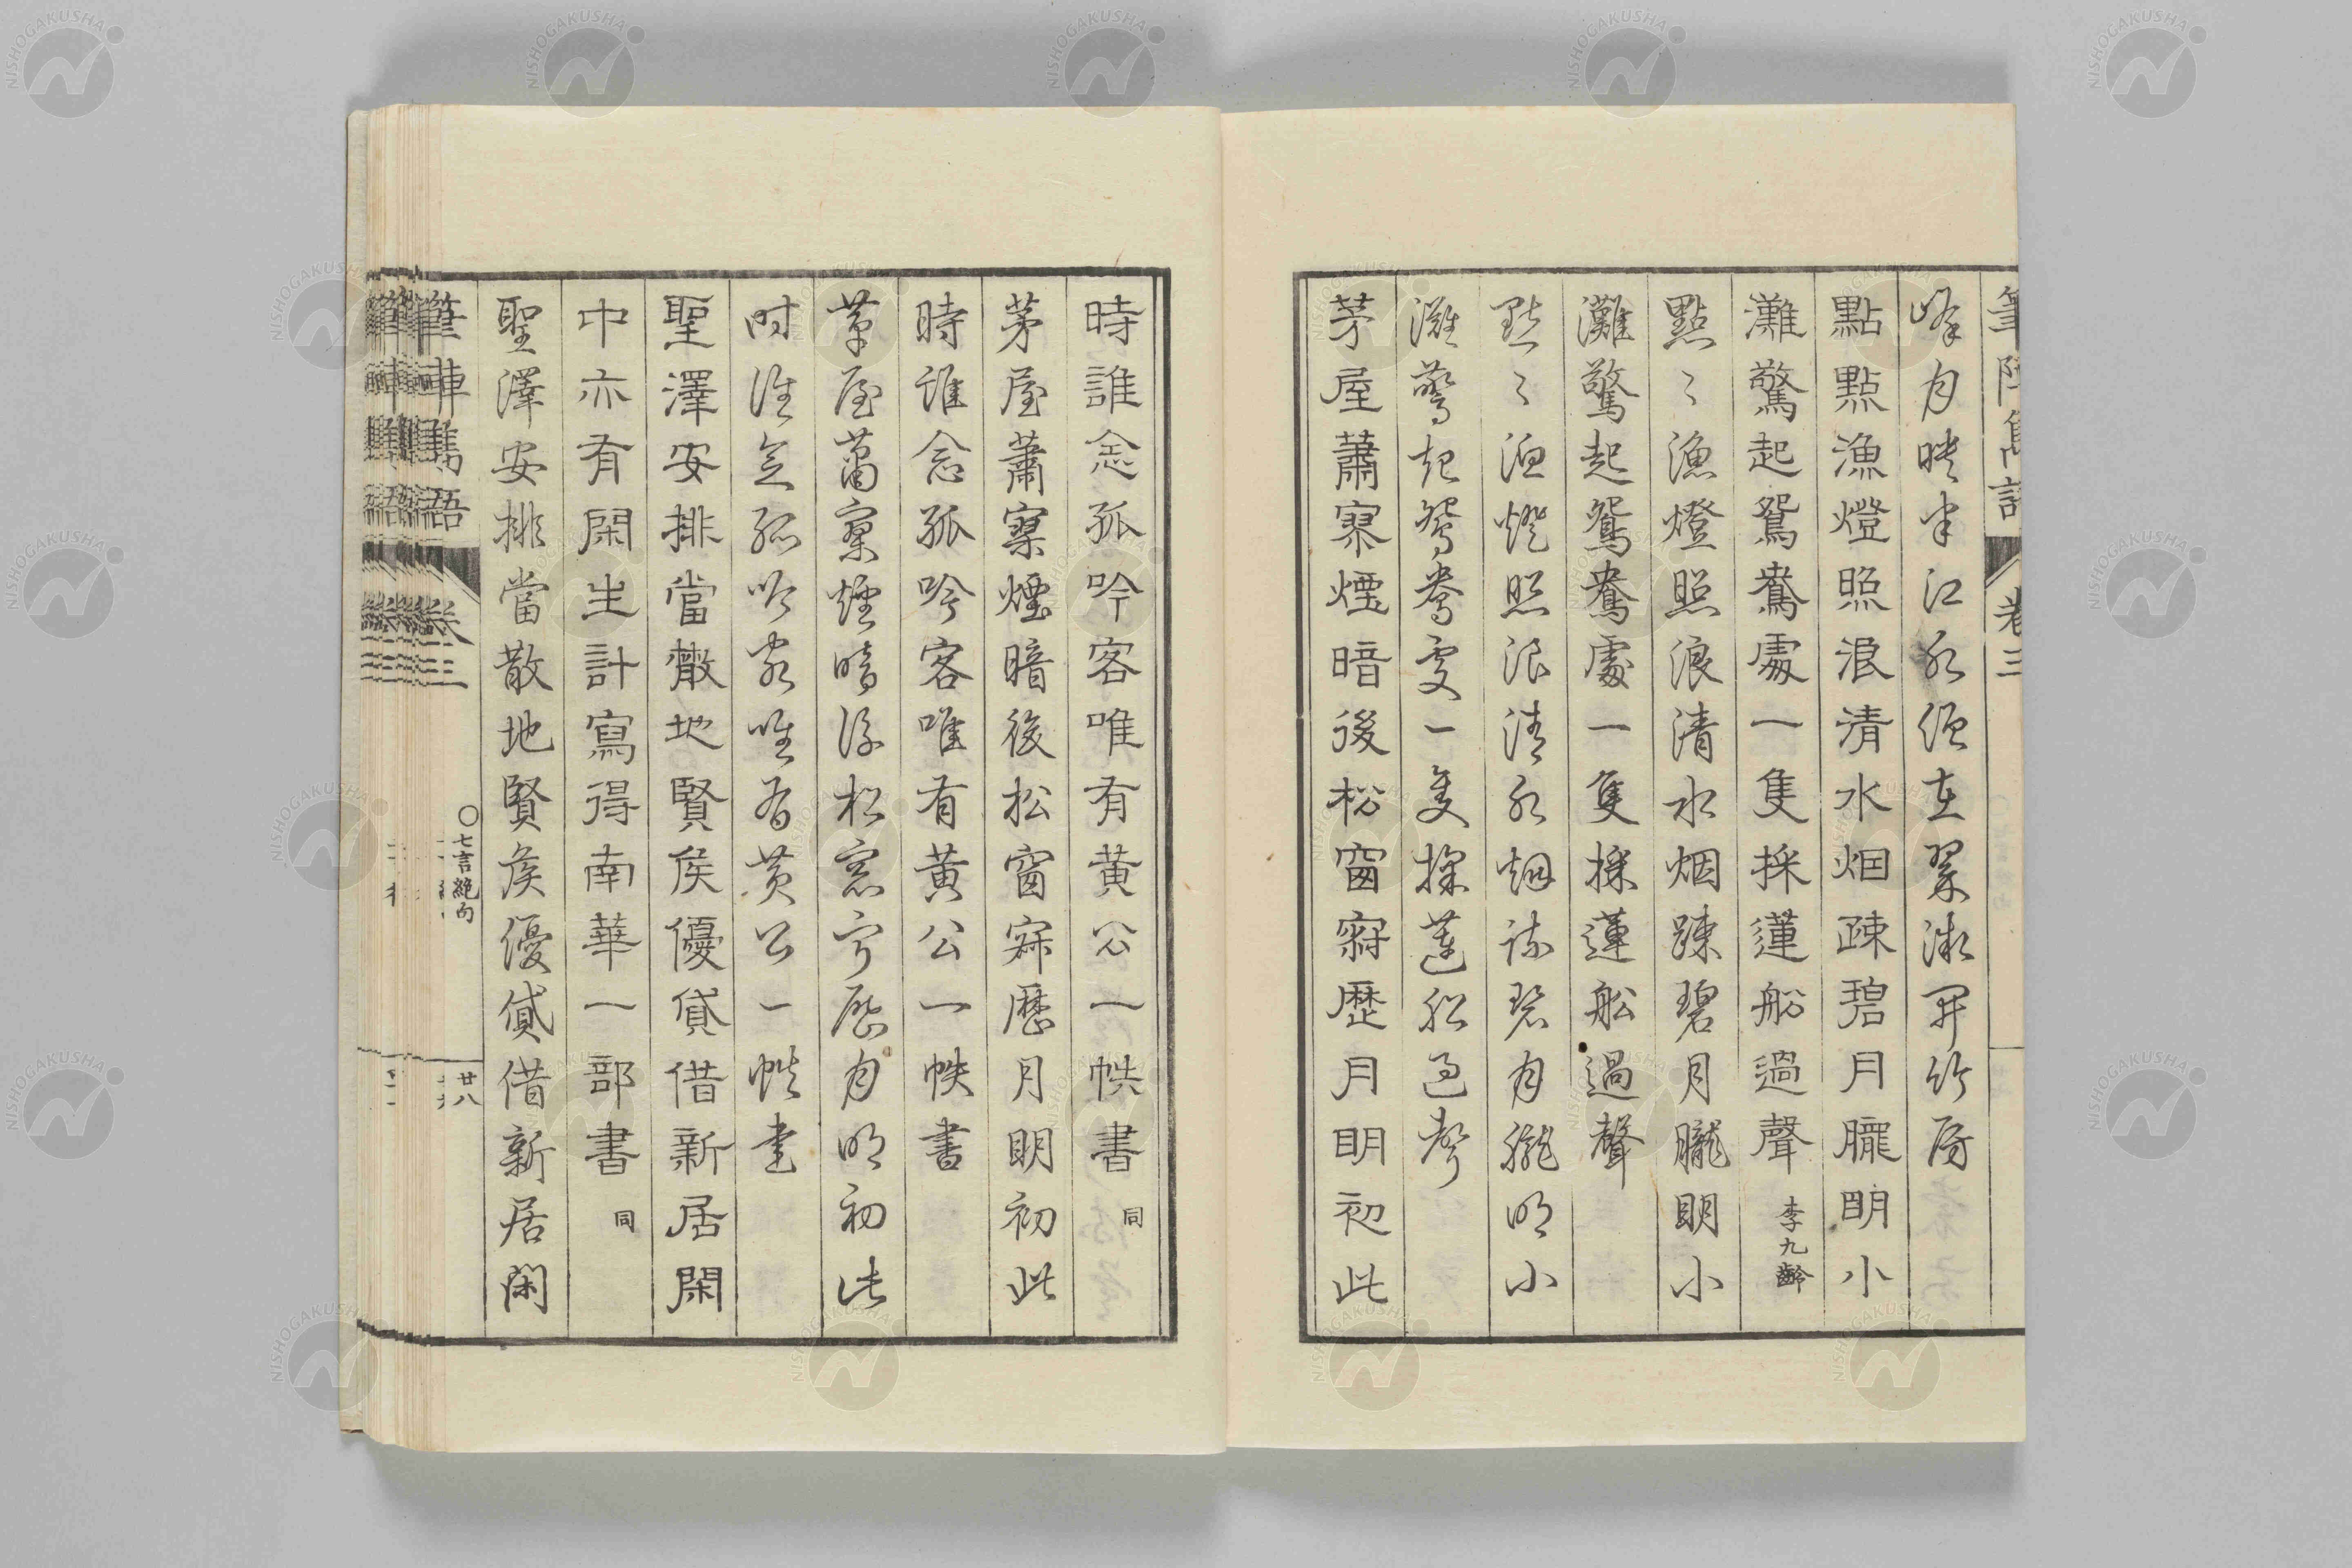 筆陣雋語 卷三
峰月映半江水煙在翠微開竹房
點點漁燈照浪清水烟疎碧月朧明小
灘驚起鴛鴦處一隻採蓮船過聲 李九齡
點〻漁燈照浪清水烟疎碧月朧明小
灘驚起鴛鴦處一隻採蓮船過聲
點〻漁燈照浪清水烟疎碧月朧明小
灘驚起鴛鴦處一隻採蓮船過聲
茅屋蕭寥煙暗後松窗寂歷月明初此
時誰念孤吟客唯有黃公一帙書 同
茅屋蕭寥煙暗後松窗寂歷月明初此
時誰念孤吟客唯有黃公一帙書
草屋蕭寥煙暗後松窓寂歷月明初此
時誰念孤吟客唯有黃公一帙書
聖澤安排當散地賢侯優貸借新居閑
中亦有閑生計寫得南華一部書 同
聖澤安排當散地賢侯優貸借新居閑
筆陣雋語 卷三 〇七言絕句 廿八
NISHOGAKUSHA